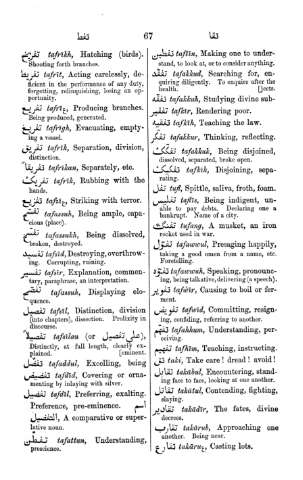 تفر
67
تقا
تفريخ tafrīkh, Hatching (birds).
Shooting forth branches.
تفريط tafrīt, Acting carelessly, de-
ficient in the performance of any duty.
forgetting, relinquishing, losing an op-
portunity.
تفريع tafrīʿ, Producing branches.
Being produced, generated.
تفريغ tafrīgh, Evacuating, empty-
ing a vessel.
تفريق tafrīk, Separation, division,
distinction.
تفريقاً tafrīkan, Separately, etc.
تفريك tafrīk, Rubbing with the
hands.
تفزيع tafzīʿ, Striking with terror.
تفسح tafassuh, Being ample, capa-
cious (place).
تفسخ tafassukh, Being dissolved,
broken, destroyed.
تفسيد tafsīd, Destroying, overthrow-
ing. Corrupting, ruining.
تفسير tafsīr, Explanation, commen-
tary, paraphrase, an interpretation.
تفصح tafassuh, Displaying elo-
quence.
تفصيل tafsīl, Distinction, division
[into chapters], dissection. Prolixity in
discourse.
تفصيلاً tafsīlan (or على تفصيل),
Distinctly, at full length, clearly ex-
plained. [eminent.
تفضل tafaddul, Excelling, being
تفضيض tafdīd, Covering or orna-
menting by inlaying with silver.
تفضيل tafdīl, Preferring, exalting.
Preference, pre-eminence. اسم
التفضيل, A comparative or super-
lative noun.
تفطن tafattun, Understanding,
prescience.
تفطين taftīn, Making one to under-
stand, to look at, or to consider anything.
تفقد tafakkud, Searching for, en-
quiring diligently. To enquire after the
health. [jects.
تفقه tafakkuh, Studying divine sub-
تفقير tafkīr, Rendering poor.
تفقيه tafkīh, Teaching the law.
تفكر tafakkur, Thinking, reflecting.
تفكك tafakkuk, Being disjoined,
dissolved, separated, broke open.
تفكيك tafkīk, Disjoining, sepa-
rating.
تفل tufl, Spittle, saliva, froth, foam.
تفليس taflīs, Being indigent, un-
able to pay debts. Declaring one a
bankrupt. Name of a city.
تفنك tufang, A musket, an iron
rocket used in war.
تفول tafawwul, Presaging happily,
taking a good omen from a name, etc.
Foretelling.
تفوه tafawwuh, Speaking, pronounc-
ing, being talkative, delivering (a speech).
تفوير tafwīr, Causing to boil or fer-
ment.
تفويض tafwīd, Committing, resign-
ing, confiding, referring to another.
تفهم tafahhum, Understanding, per-
ceiving.
تفهيم tafhīm, Teaching, instructing.
تقي taki, Take care! dread! avoid!
تقابل takābul, Encountering, stand-
ing face to face, looking at one another.
تقاتل takātul, Contending, fighting,
slaying.
تقادير takādīr, The fates, divine
decrees.
تقارب takārub, Approaching one
another. Being near.
تقارع takāruʿ, Casting lots.